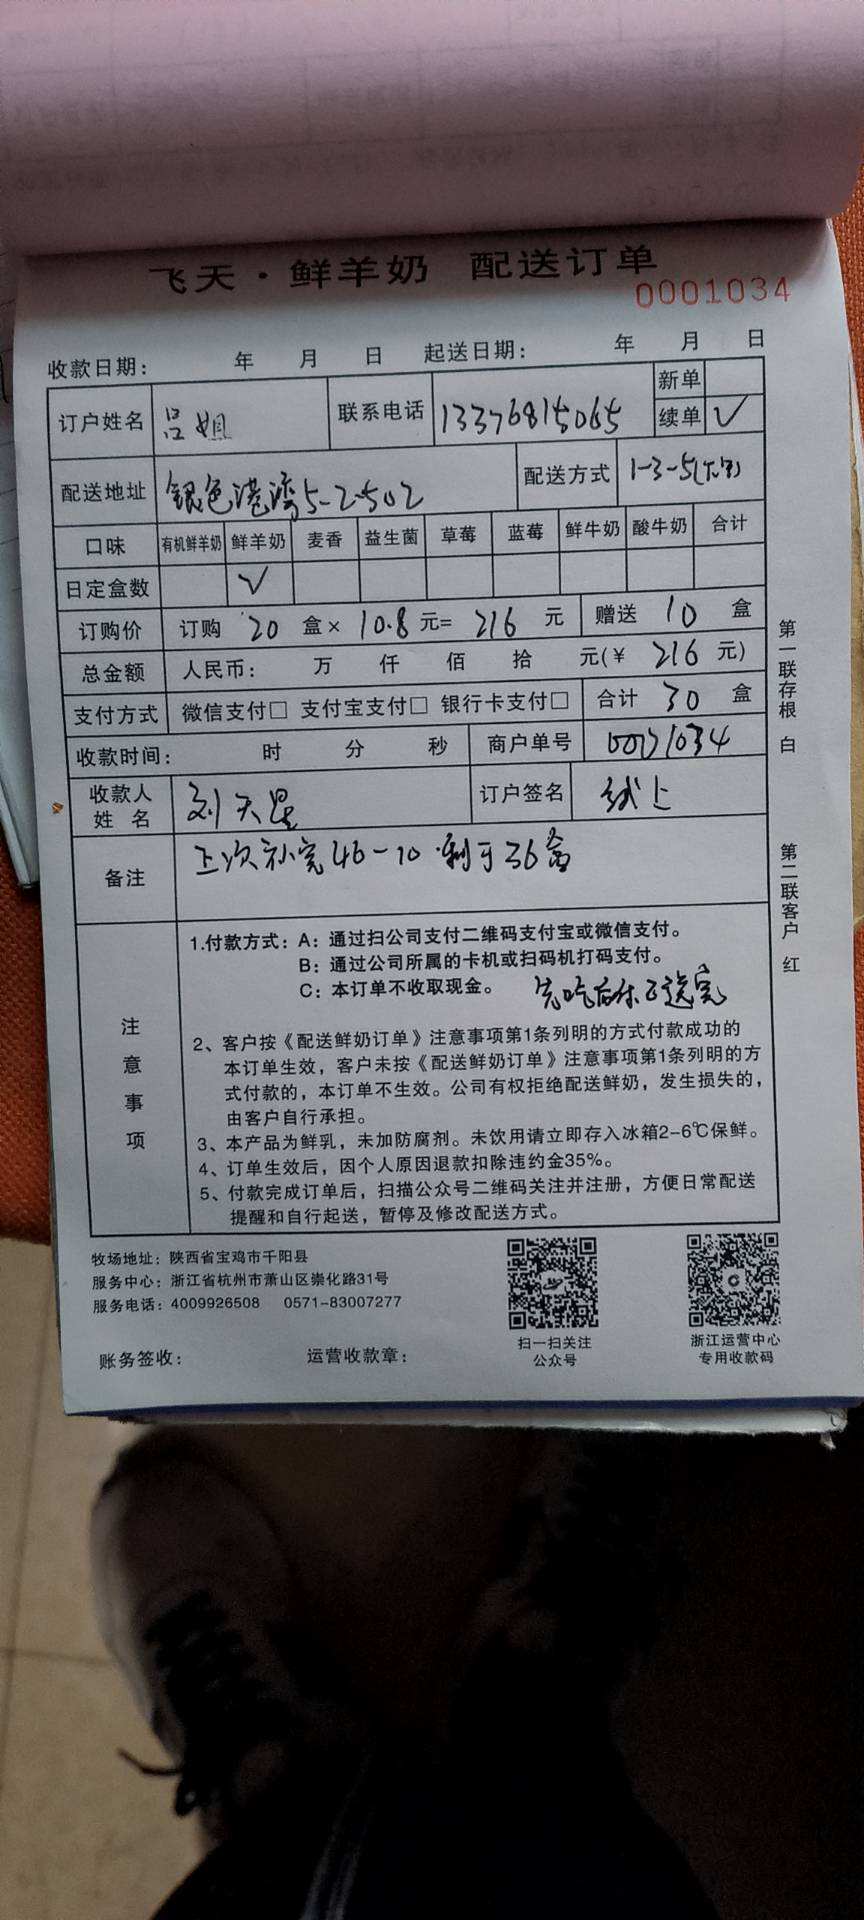 飞天·鲜羊奶 配送订单
0001034
收款日期: 年 月 日 起送日期: 年 月 日
订户姓名 吕姐 联系电话 13376815065 新单
续单 √
配送地址 银色港湾5-2-502 配送方式 1-3-5
口味 有机鲜羊奶 鲜羊奶 麦香 益生菌 草莓 蓝莓 鲜牛奶 酸牛奶 合计
日定盒数 √
订购价 订购 20 盒× 10.8 元= 216 元 赠送 10 盒
总金额 人民币: 万 仟 佰 拾 元(¥ 216 元)
支付方式 微信支付□ 支付宝支付□ 银行卡支付□ 合计 30 盒
收款时间: 时 分 秒 商户单号 0001034
收款人
姓 名 刘天星 订户签名 线上
备注 上次补完46-10剩于36盒
注意事项
1.付款方式: A: 通过扫公司支付二维码支付宝或微信支付。
B: 通过公司所属的卡机或扫码机打码支付。
C: 本订单不收取现金。 先吃后
送完
2、客户按《配送鲜奶订单》注意事项第1条列明的方式付款成功的
本订单生效，客户未按《配送鲜奶订单》注意事项第1条列明的方
式付款的，本订单不生效。公司有权拒绝配送鲜奶，发生损失的，
由客户自行承担。
3、本产品为鲜乳，未加防腐剂。未饮用请立即存入冰箱2-6℃保鲜。
4、订单生效后，因个人原因退款扣除违约金35%。
5、付款完成订单后，扫描公众号二维码关注并注册，方便日常配送
提醒和自行起送，暂停及修改配送方式。
第一联存根 白
第二联客户 红
牧场地址: 陕西省宝鸡市千阳县
服务中心: 浙江省杭州市萧山区崇化路31号
服务电话: 4009926508 0571-83007277
扫一扫关注
公众号
浙江运营中心
专用收款码
账务签收: 运营收款章: